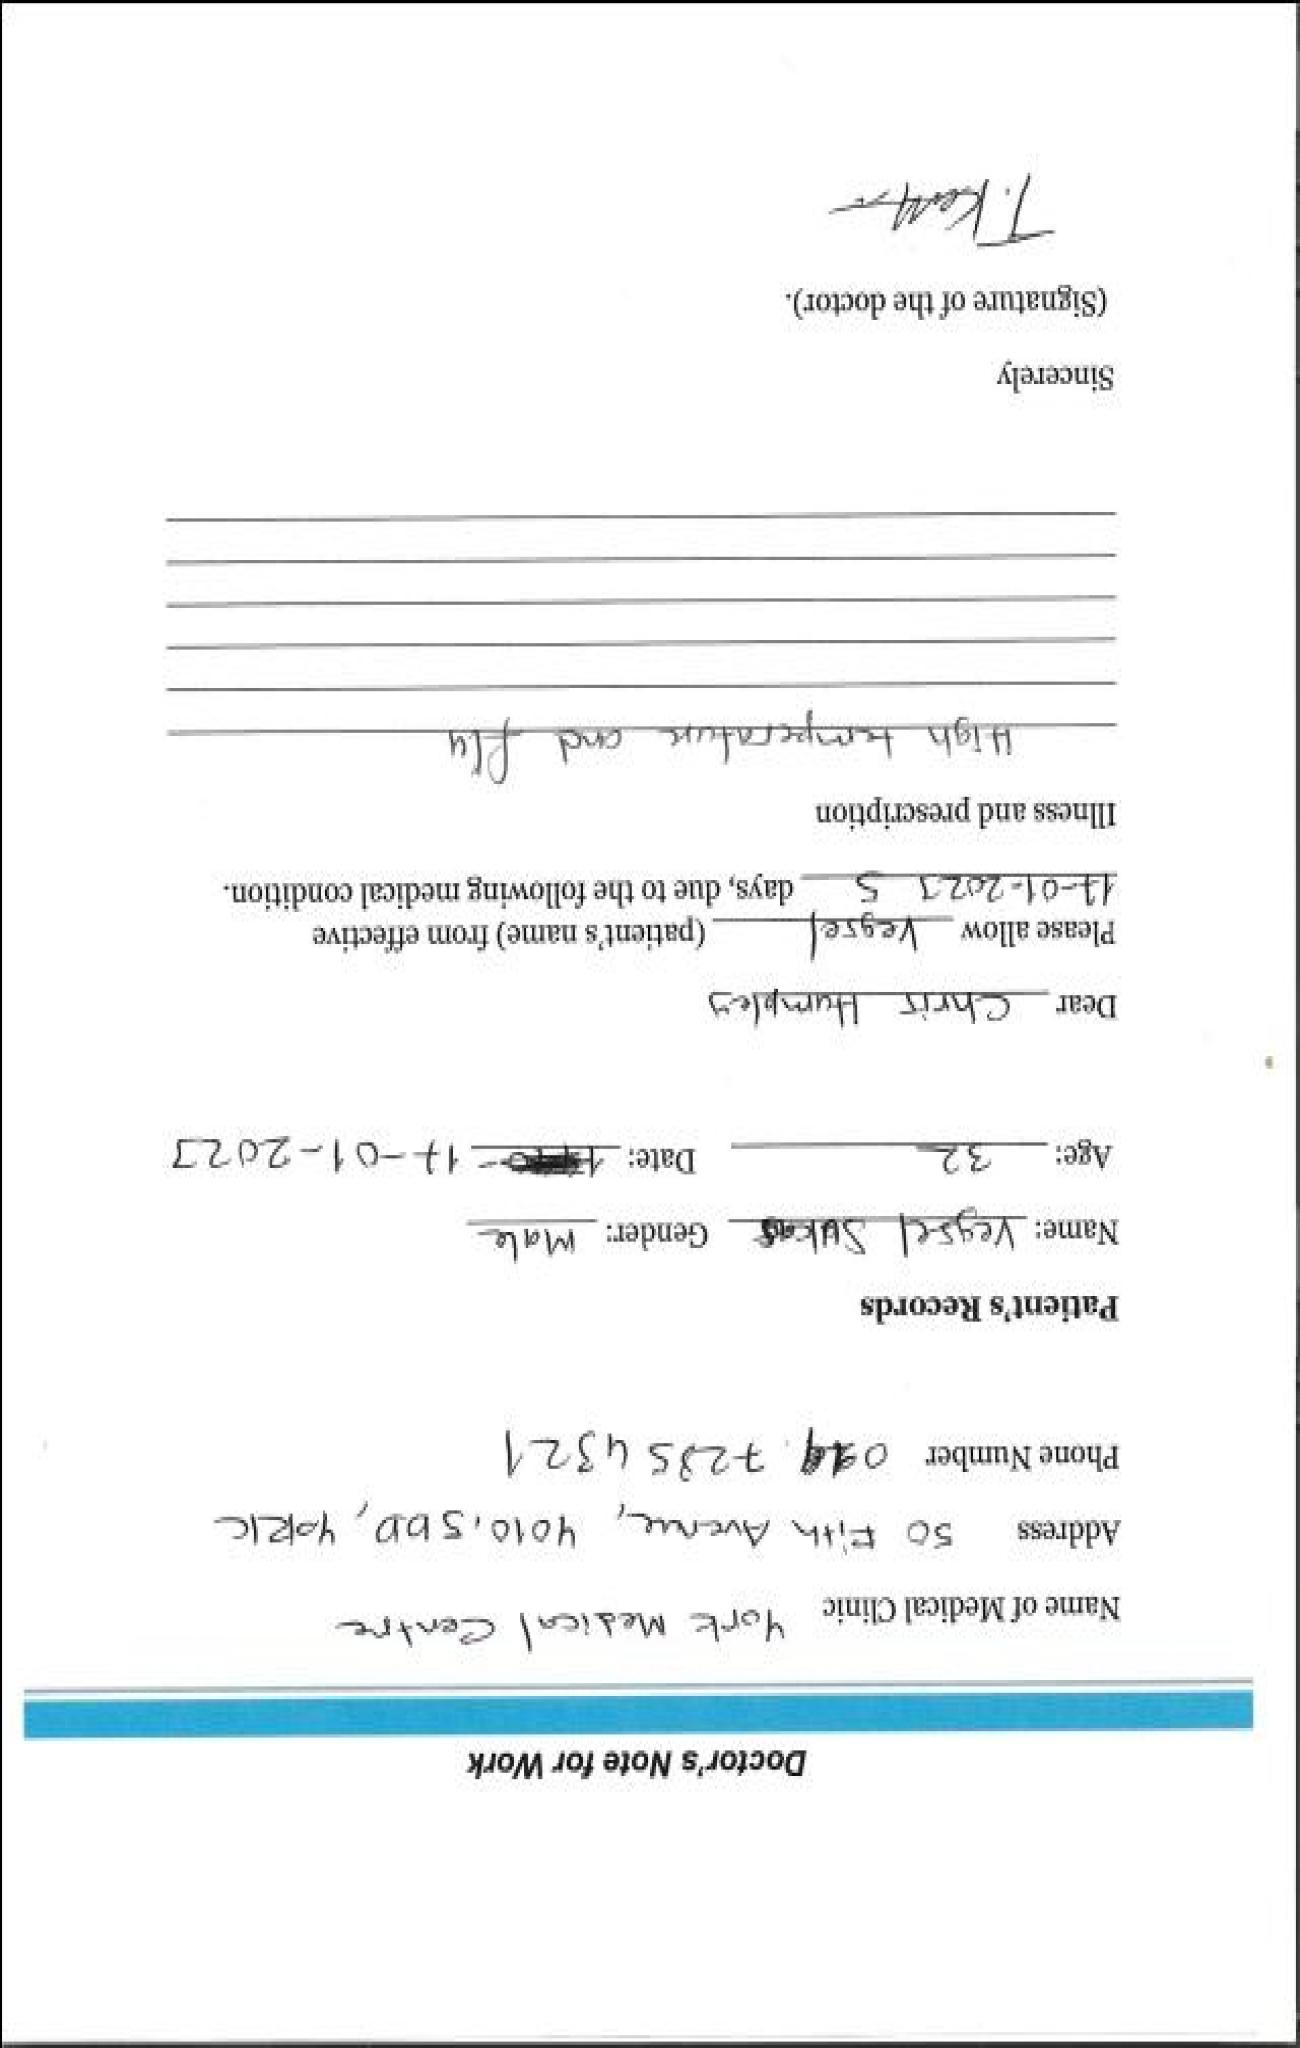 Doctor's Note for Work
Name of Medical Clinic York Medical Centre
Address 50 Fith Avenue, 4010, 5DD, YORK
Phone Number 7235 4321
Patient's Records
Name: Veysel Gender: Male
Age: 32 Date: 17-01-2023
Dear Chris Humpley
Please allow Veysel (patient's name) from effective
17-01-2023 5 days, due to the following medical condition.
Illness and prescription
High temperature and flu
Sincerely
(Signature of the doctor).